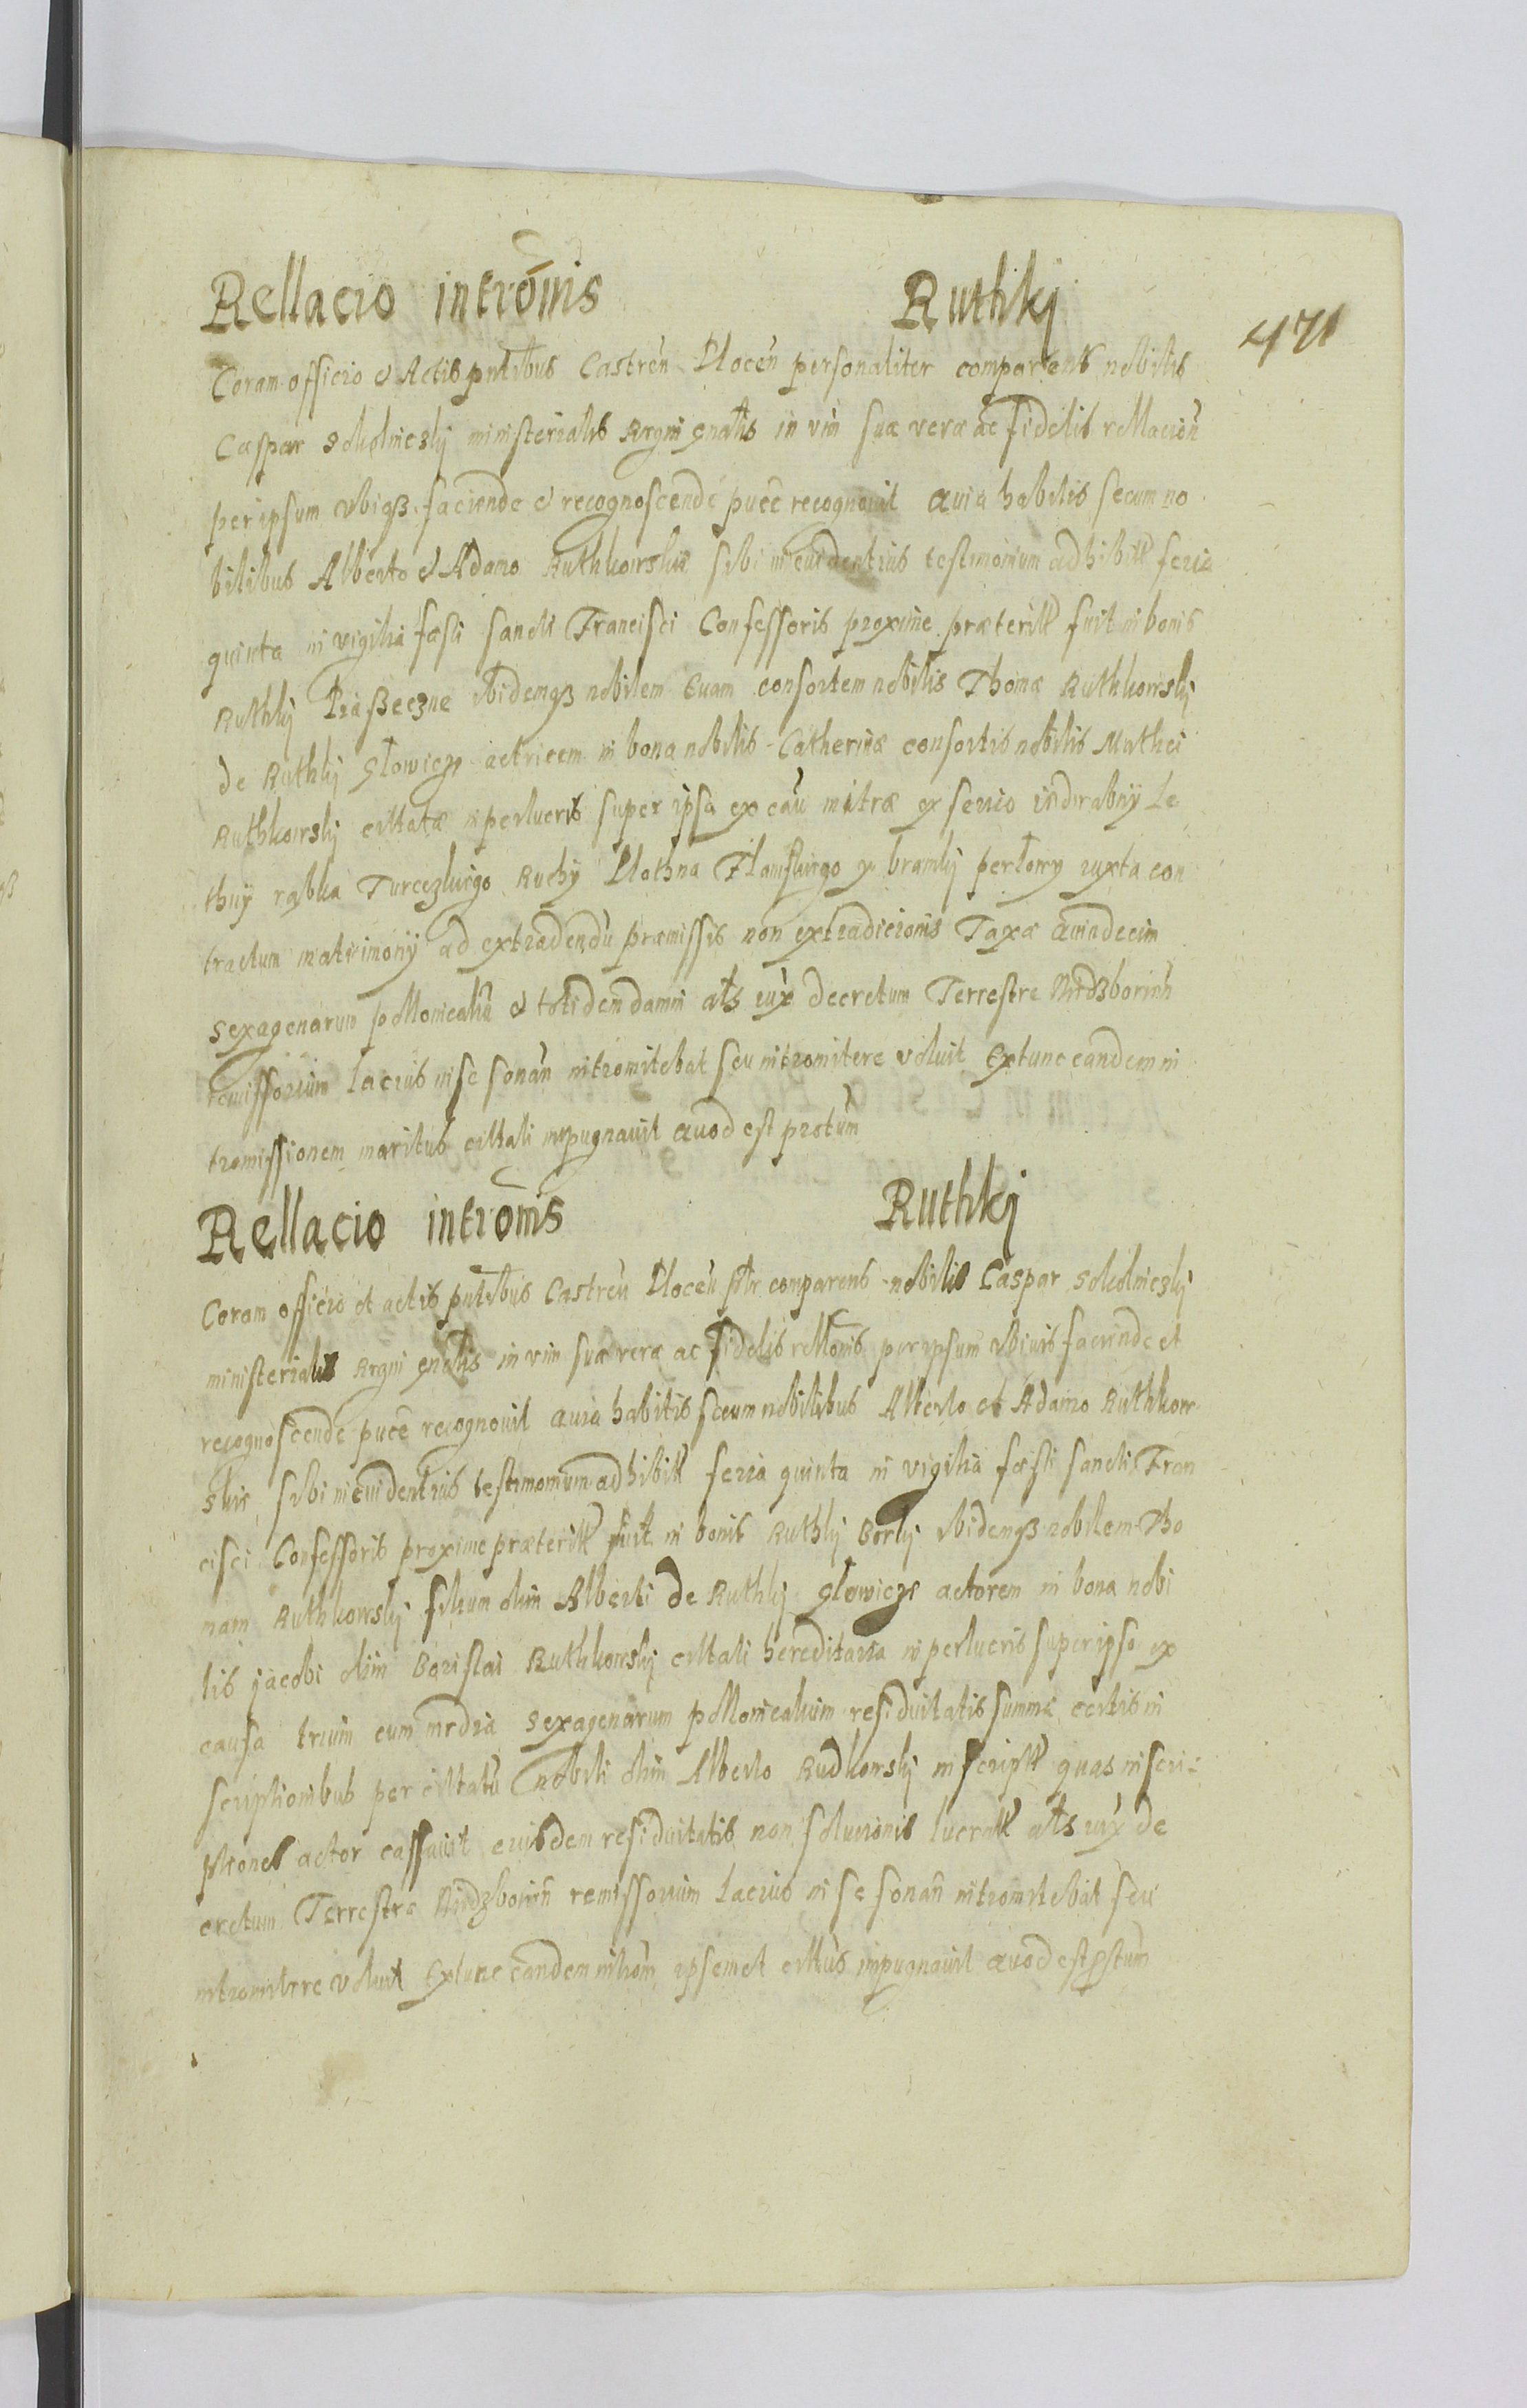 Rellacio intromis Ruthkj
471
Coram officio et Actis pntibus Castren Plocen personaliter comparens nobilis
Caspar Sokolniczkj ministerialis Regni gnalis in vim suæ veræ ac fidelis rellacion
per ipsum ubiqß faciende et recognoscende pucē recognovit Quia habitis secum no
bilibus Alberto et Adamo Ruthkowskie sibi in evidentius testimonium adhibitt feria
quinta in vigilia fæsti sancti Francisci Confessoris proxime præteritt fuit in bonis
Ruthkj Piaßeczne ibidemqß nobilem Evam consortem nobilis Thomæ Ruthkowskj
de Ruthkj Głowicze actricem in bona nobilis Catherinæ consortis nobilis Mathei
Ruthkowskj cittatæ in perlucris super ipsa ex cau
thuÿ rąbka Turceczkiego Ruchÿ Płothna y bramkj perłowy iuxta con
tractum matrimonÿ ad extradendū præmissis non extradicionis Taxæ Quindecim
sexagenarum pollonicaliū et totidem damni ats iux decretum Terrestre
remissorium lacius in se sonan intromitebat seu intromitere voluit Extunc eandem in
tromissionem maritus cittati inpugnavit Quod est protūm
Rellacio intromis Ruthkj
Coram officio et actis pntibus Castren Plocen pltr comparens nobilis Caspar Sokolniczkj
ministerialis Regni gnalis in vim suæ veræ ac fidelis rellonis per ipsum ubivis faciende et
recognoscende pucē recognovit Quia habitis secum nobilibus Alberto et Adamo Ruthkow
skie sibi in evidentius testimonium adhibitt feria quinta in vigilia fæsti sancti Fran
cisci Confessoris proxime præteritt fuit in bonis Ruthkj Borkj ibidemqß nobilem Tho
mam Ruthkowskj filium olim Alberti de Ruthkj Głowicze actorem in bona nobi
lis jacobi olim Ruthkowskj cittati hereditaria in perlucris super ipso ex
causa trium cum media sexagenarum pollonicalium residuitatis summæ certis in
scriptionibus per cittatū nobili olim Alberto Rudkowskj inscriptt quas inscri-
ptiones actor cassavit eiusdem residuitatis non solucionis lucratt ats iux de
cretum Terrestre remissorium lacius in se sonan intromitebat seu
intromittere voluit Extunc eandem introm ipsemet cittus impugnavit Quod est pstum